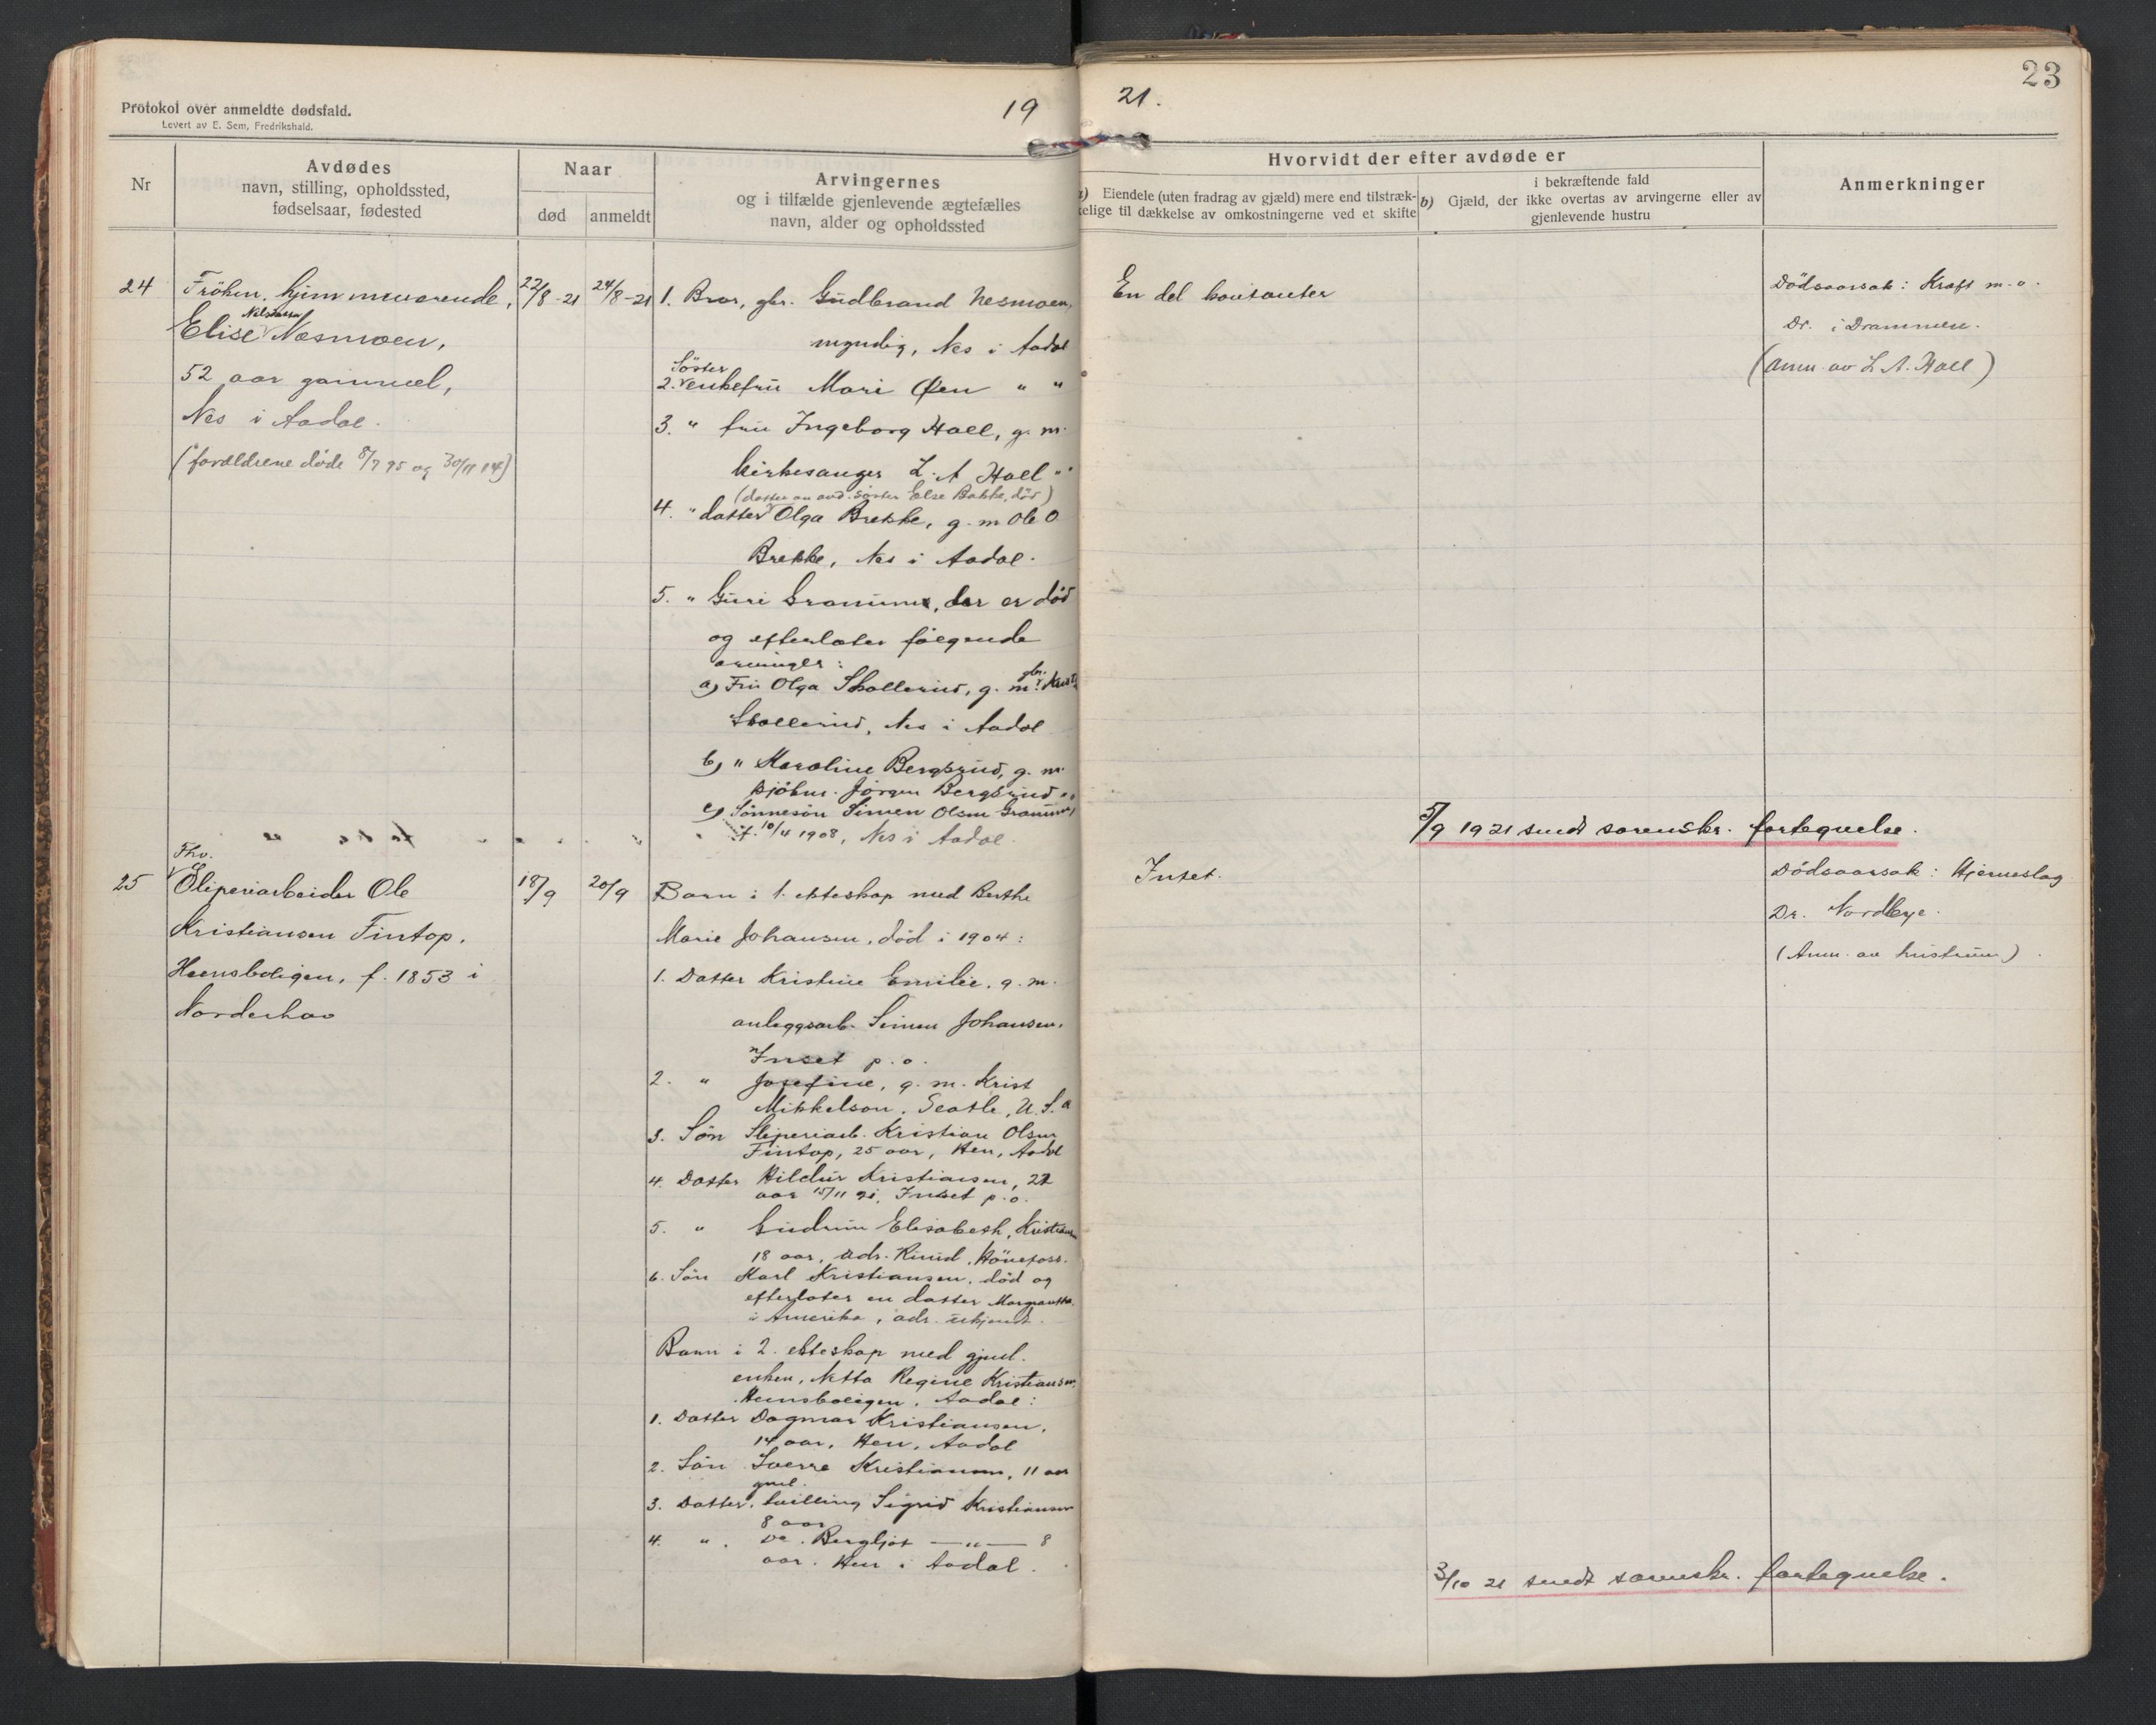 Protokol over anmeldte dødsfald.
Levert av E. Sem, Fredrikshald.
19
21.
23
Nr
Avdødes
navn, stilling, opholdssted,
fødselsaar, fødested
Naar
død
anmeldt
Arvingernes
og i tilfælde gjenlevende ægtefælles
navn, alder og opholdssted
Hvorvidt der efter avdøde er
a) Eiendele (uten fradrag av gjæld) mere end tilstræk-
kelige til dækkelse av omkostningerne ved et skifte
i bekræftende fald
b) Gjæld, der ikke overtas av arvingerne eller av
gjenlevende hustru
Anmerkninger
24
Fröken, hjemmeværende,
Nilsdatter
Elise Næsmoen,
52 aar gammel,
Nes i Aadal.
(forældrene døde 8/7 95 og 30/11 14)
22/8-21
24/8-21
1. Bror, gbr. Gudbrand Nesmoen,
myndig, Nes i Aadal
Söster
2. enkefru Mari Øen " "
3. " fru Ingeborg Hoel, g. m.
kirkesanger L. A. Hoel "
(datter av avd. søster Else Bakke, død)
4. " datter Olga Brekke, g. m Ole O
Brekke, Nes i Aadal.
5. " Guri Grammen, der er död
og efterlater følgende
arvinger:
a) Fru Olga Skollerud, g. m. gbr. Knut
Skollerud, Nes i Aadal
b) " Karoline Bergsrud, g. m.
kjöbm. Jörgen Bergsrud "
c) Sönnesön Simen Olsen Grammen,
f. 10/4 1908, Nes i Aadal.
En del kontanter
Dödsaarsak: Kræft m. v.
Dr. i Drammen.
(Anm. av L. A. Hoel)
5/9 1921 sendt sorenskr. fortegnelse.
25
Fhv.
Sliperiarbeider Ole
Kristiansen Fintop,
Hensboligen, f. 1853 i
Norderhov
18/9
20/9
Barn i 1. ekteskap med Berthe
Marie Johansen, död i 1904:
1. Datter Kristine Emilie, g. m.
anleggsarb. Simen Johansen,
Inset p. o.
2. " Josefine, g. m. Krist
Mikkelson, Seatle, U. S. a
3. Sön Sliperiarb. Kristian Olsen
Fintop, 25 aar, Hen, Aadal
4. Datter Hildur Kristiansen, 22
aar 15/11 21, Inset p. o.
5. " Gudrun Elisabeth, Kristiansen
18 aar, adr. Rund, Hönefoss.
6. Sön Karl Kristiansen, död og
efterlater en datter Margretha
i Amerika, adr. ukjendt.
Barn i 2. ekteskap med gjenl.
enken, Netta Regine Kristiansen,
Hensboligen, Aadal:
1. Datter Dagmar Kristiansen,
14 aar, Hen, Aadal
2. Sön Sverre Kristiansen, 11 aar
gml.
3. Datter, tvilling Sigrid Kristiansen
8 aar
4. " . Do. Bergljot —"— 8
aar. Hen i Aadal.
Intet.
Dödsaarsak: Hjerneslag
Dr. Nordbye.
(Anm. av hustruen).
3/10 21 sendt sorenskr. fortegnelse.